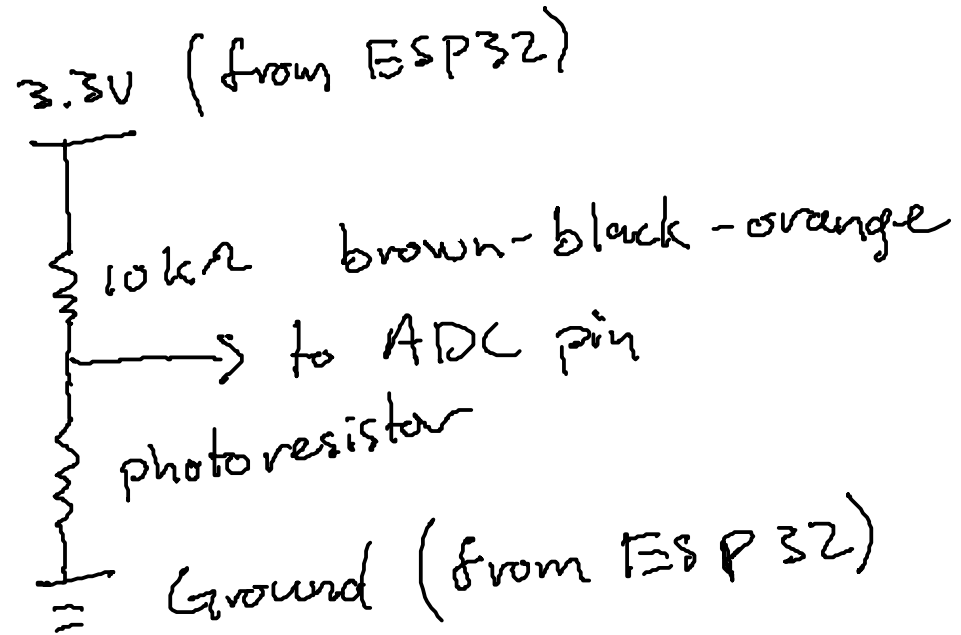 3.3V (from ESP32)
10kΩ brown-black-orange
to ADC pin
photoresistor
Ground (from ESP32)